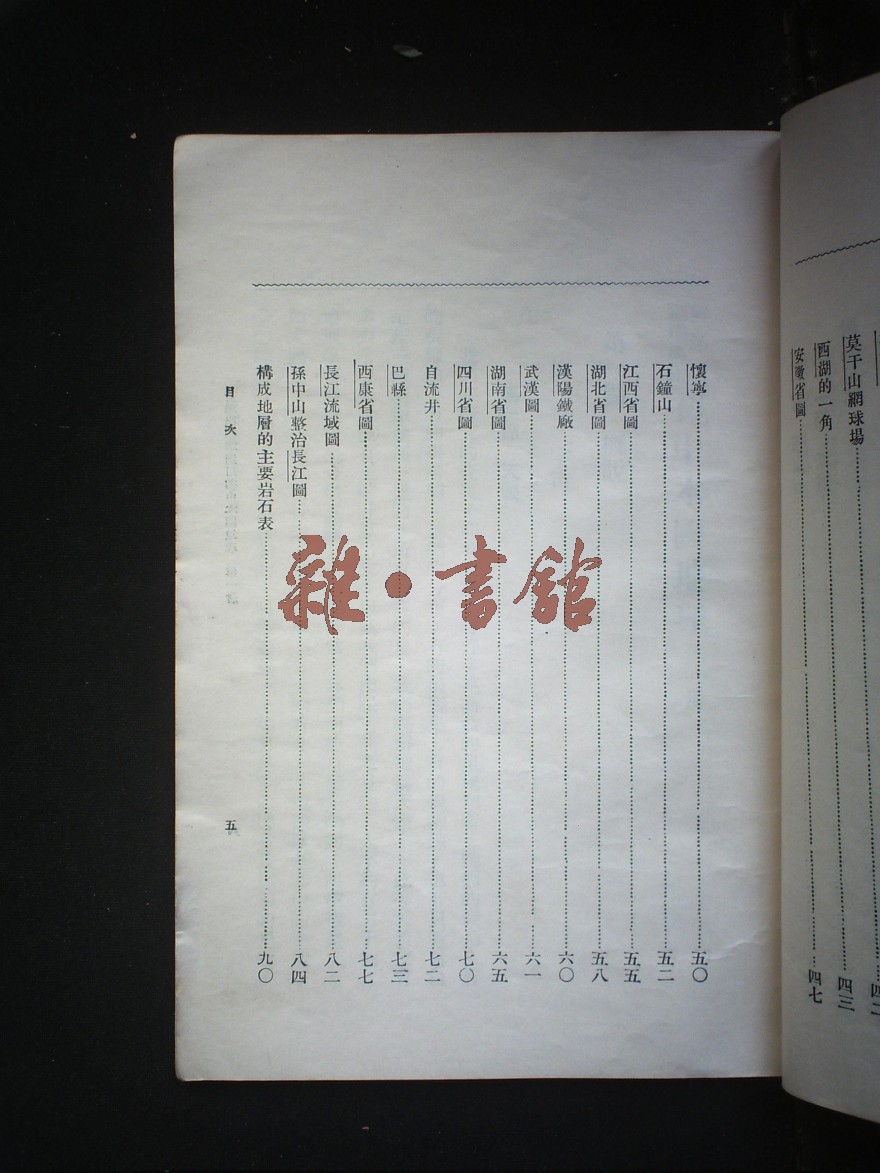 莫干山網球場……四三
西湖的一角
安徽省圖……四七
懷寧……五〇
石鐘山……五二
江西省圖……五五
湖北省圖……五八
漢陽鐵廠……六〇
武漢圖……六一
湖南省圖……六五
四川省圖……七〇
自流井……七二
巴縣……七三
西康省圖……七七
長江流域圖……八二
孫中山整治長江圖……八四
構成地層的主要岩石表……九〇
目次
五
雜·書館